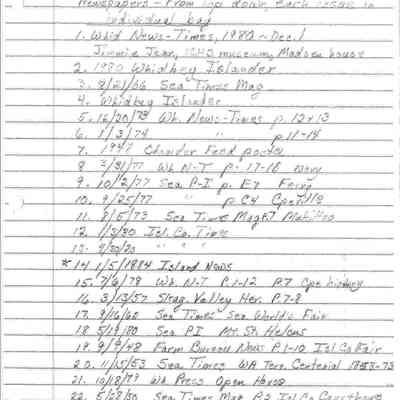 Newspapers - From top down, each issue in
individual bag
1. Whid News-Times, 1980 - Dec. 1
Jimmie Jean, ICHS museum, Madsen house
2. 1980 Whidbey Islander
3. 8/21/66 Sea Times Mag
4. Whidbey Islander
5. 16/20/78 Wh. News-Times p. 12+13
6. 1/3/74 " p 11-14
7. 1947 Feed
8 3/31/77 Wh N-T p. 17-18 navy
9. 10/2/77 Sea P-I p. E7 Ferry
10. 9/25/77 " p C4 Cpevlle
11. 8/5/73 Sea Time Mag
12. 1/3/80 Isl. Co. Times
13. 9/30/20 " " "
*14 1/5/1884 Island News
15. 7/6/78 Wh. N-T P.1-12 P.7 Cpe history
16. 3/13/57 Skag. Valley Her. P.7-8
17. 9/16/60 Sea Times Sea World's Fair
18. 5/19/80 Sea P.I Mt. St. Helens
19. 9/9/48 Farm Bureau News P.1-10 Isl Co Fair
20. 11/15/53 Sea Times WA Terr. Centenial 1853-73
21. 10/18/79 Wh Press Open House
22. 5/28/50 Sea Times Mag P.3 Isl Co Courthouse